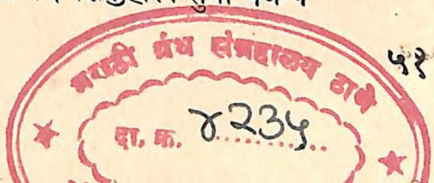 मराठी ग्रंथ संग्रहालय ठाणे
५१
दा. क्र. ४२३५